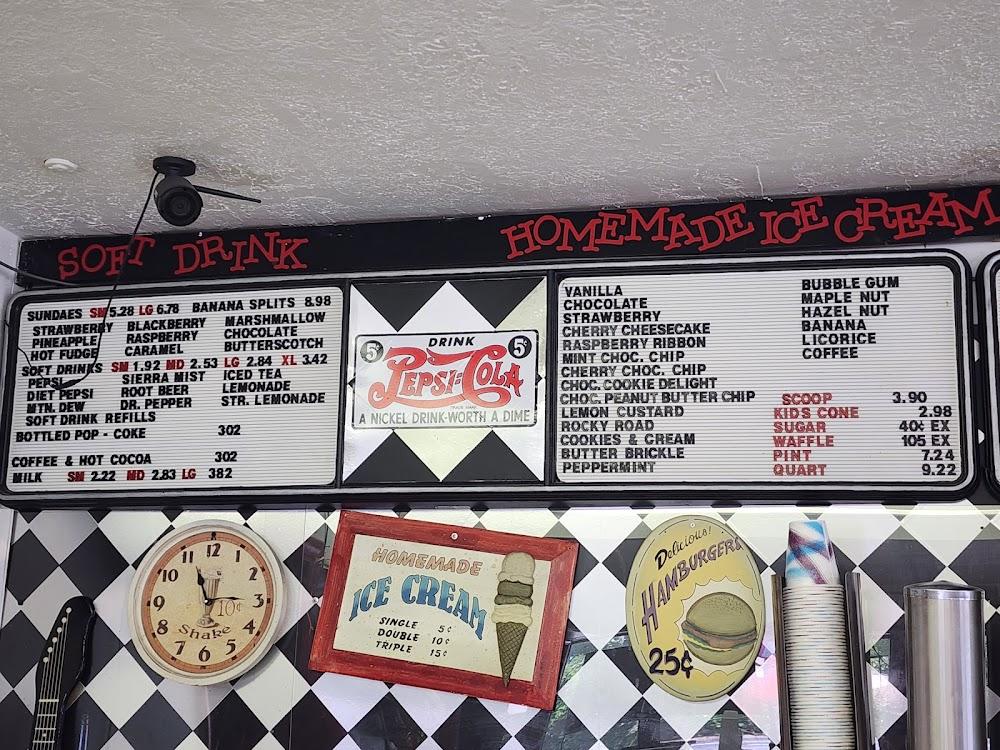 SOFT DRINK
HOMEMADE ICE CREAM
SUNDAES SM 5.28 LG 6.78 BANANA SPLITS 8.98
STRAWBERRY BLACKBERRY MARSHMALLOW
PINEAPPLE RASPBERRY CHOCOLATE
HOT FUDGE CARAMEL BUTTERSCOTCH
SOFT DRINKS SM 1.92 MD 2.53 LG 2.84 XL 3.42
PEPSI SIERRA MIST ICED TEA
DIET PEPSI ROOT BEER LEMONADE
MTN. DEW DR. PEPPER STR. LEMONADE
SOFT DRINK REFILLS
BOTTLED POP - COKE 302
COFFEE & HOT COCOA 302
MILK SM 2.22 MD 2.83 LG 382
5¢ DRINK 5¢
PEPSI=COLA
TRADE MARK
A NICKEL DRINK-WORTH A DIME
VANILLA
CHOCOLATE
STRAWBERRY
CHERRY CHEESECAKE
RASPBERRY RIBBON
MINT CHOC. CHIP
CHERRY CHOC. CHIP
CHOC. COOKIE DELIGHT
CHOC. PEANUT BUTTER CHIP
LEMON CUSTARD
ROCKY ROAD
COOKIES & CREAM
BUTTER BRICKLE
PEPPERMINT
BUBBLE GUM
MAPLE NUT
HAZEL NUT
BANANA
LICORICE
COFFEE
SCOOP 3.90
KIDS CONE 2.98
SUGAR 40¢ EX
WAFFLE 105 EX
PINT 7.24
QUART 9.22
12
11 1
10 2
9 3
8 4
7 5
6
10¢
Shake
HOMEMADE
ICE CREAM
SINGLE 5¢
DOUBLE 10¢
TRIPLE 15¢
Delicious!
HAMBURGERS
25¢